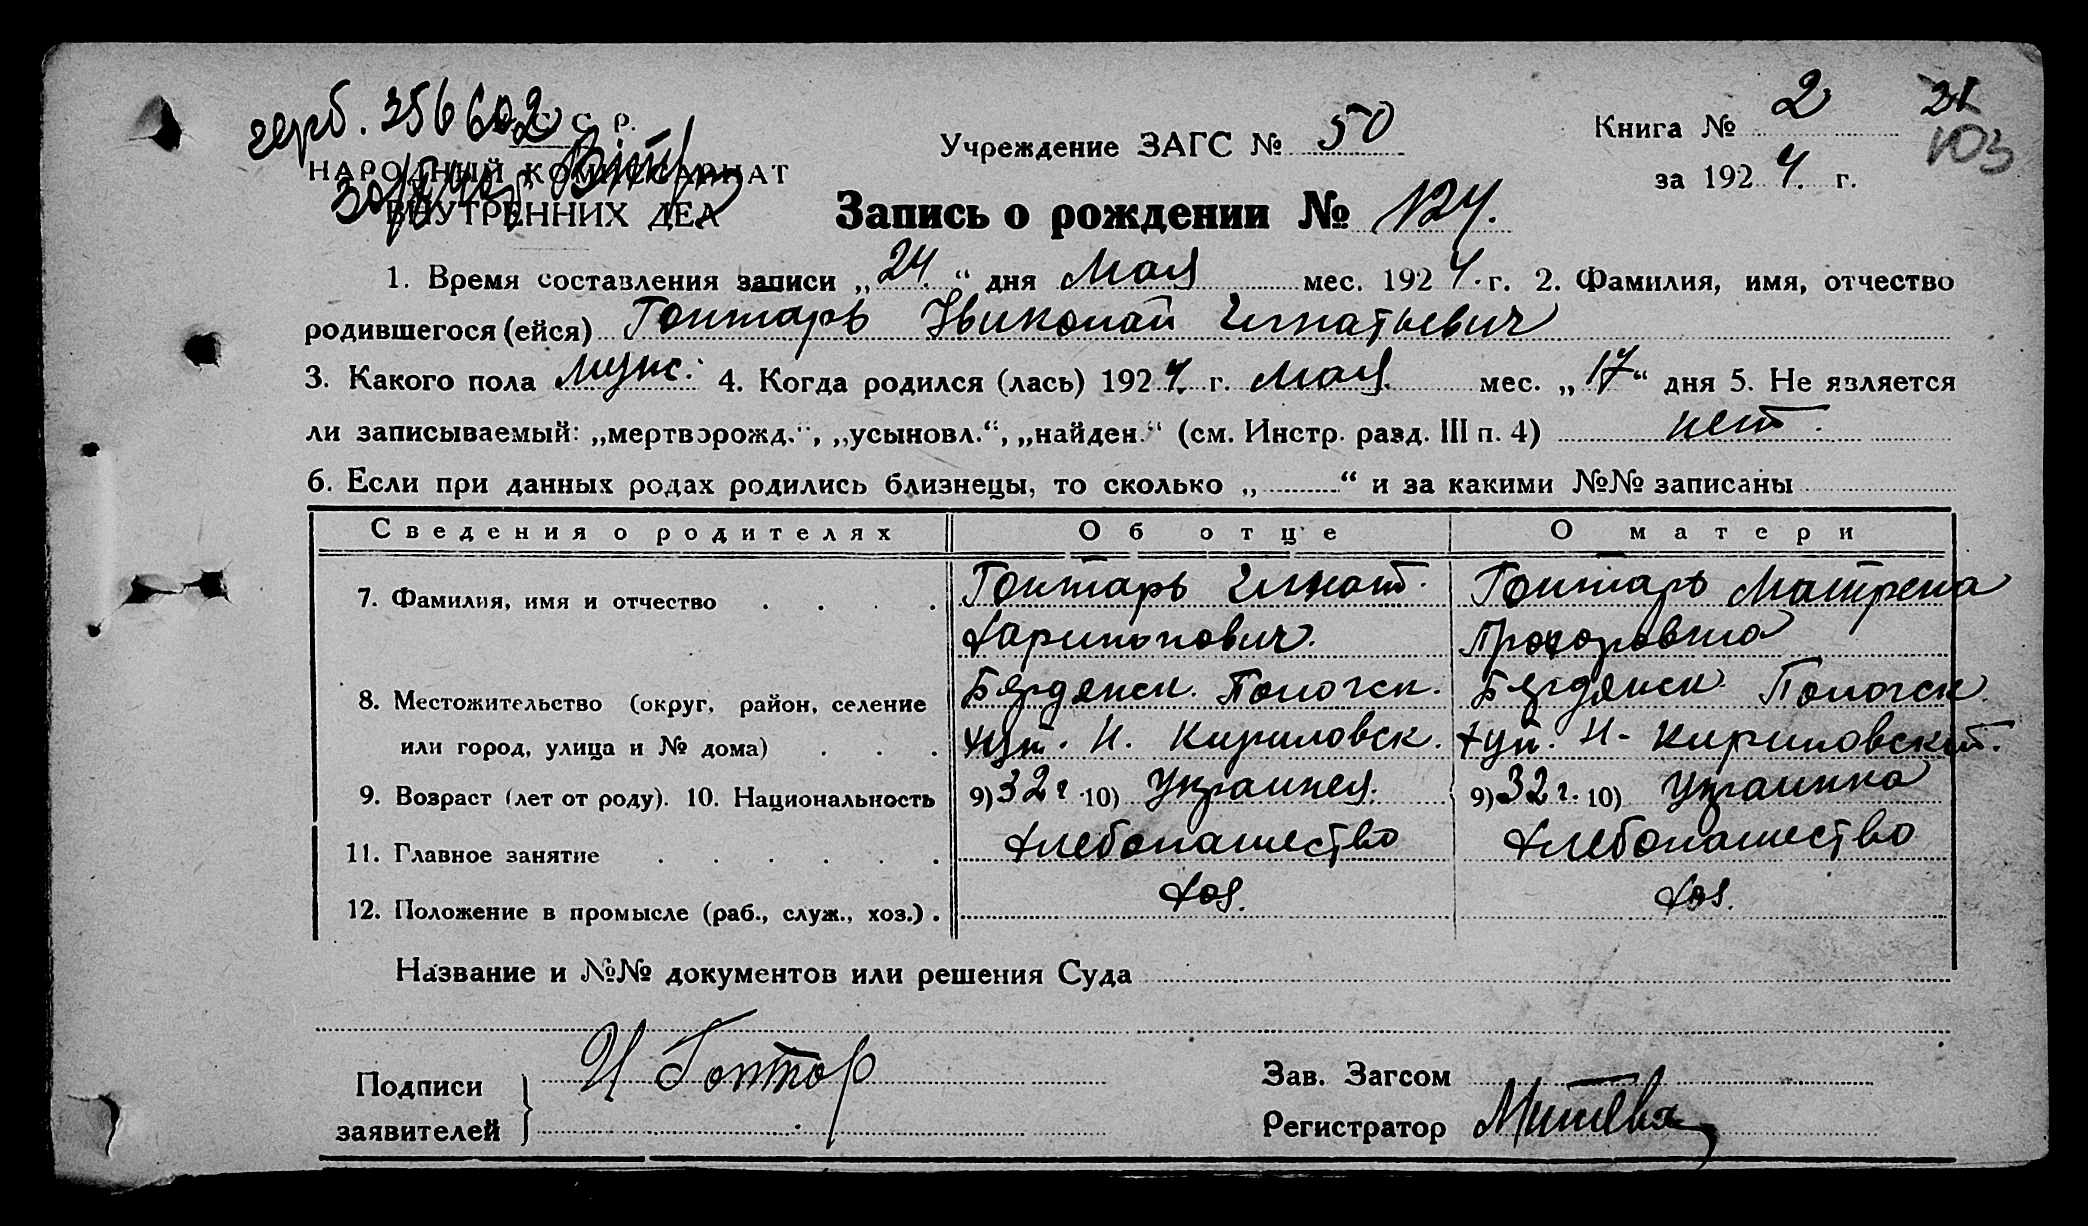 герб. 356602
У. С. С. Р.
НАРОДНЫЙ КОМИССАРИАТ
ВНУТРЕННИХ ДЕЛ
Учреждение ЗАГС № 50
Книга № 2
31
103
за 1924. г.
Запись о рождении № 124.
1. Время составления записи „24.“ дня Мая мес. 1924. г. 2. Фамилия, имя, отчество
родившегося (ейся) Гонтарь Николай Игнатьевич
3. Какого пола муж. 4. Когда родился (лась) 1924. г. Мая мес. „17“ дня 5. Не является
ли записываемый: „мертворожд.“, „усыновл.“, „найден.“ (см. Инстр. разд. III п. 4) нет.
6. Если при данных родах родились близнецы, то сколько „ “ и за какими №№ записаны
Сведения о родителях Об отце О матери
7. Фамилия, имя и отчество Гонтарь Игнат. Гонтарь Матрена
Харитонович. Прохоровна
8. Местожительство (округ, район, селение Бердянск. Пологск. Бердянск. Пологск.
или город, улица и № дома) хут. Н. Кириловск. хут. Н-Кириловский.
9. Возраст (лет от роду). 10. Национальность 9) 32 г. 10) Украинец. 9) 32 г. 10) Украинка
11. Главное занятие Хлебопашество Хлебопашество
12. Положение в промысле (раб., служ., хоз.). хоз. хоз.
Название и №№ документов или решения Суда
Подписи И Гонтар Зав. Загсом
заявителей Регистратор